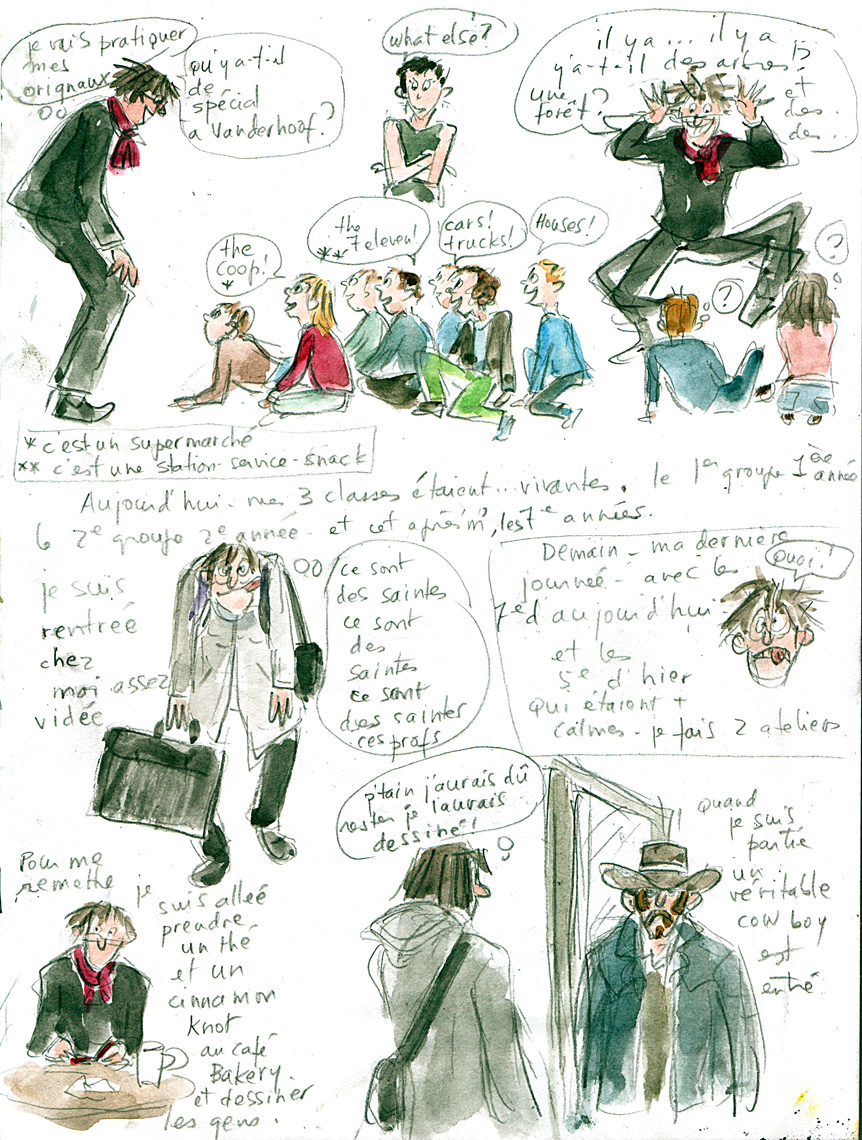 je vais pratiquer
mes
orignaux
qu'y a-t-il
de
spécial
a Vanderhoof?
what else?
il y a ... il y a
y'a-t-il des arbres!?
une
forêt?
et
des
des..
the
coop!
*
the
7 eleven!
**
cars!
trucks!
Houses!
?
?
* c'est un supermarché
** c'est une station-service-snack
Aujourd'hui - mes 3 classes étaient... vivantes. le 1er groupe 1ère
année
2e groupe 2e année - et cet après'm', les 7e années.
je suis
rentrée
chez
moi assez
vidée
ce sont
des saintes
ce sont
des
saintes
ce sont
des saintes
ces profs
Demain - ma dernière
journée - avec les
7e d'aujourd'hui
et les
5e d'hier
qui étaient +
calmes - je fais 2 ateliers
Quoi!
Pour me
remettre
je
suis alleé
prendre
un thé
et un
cinnamon
knot
au café
Bakery.
et dessiner
les gens.
p'tain j'aurais dû
rester je l'aurais
dessiné!
quand
je suis
partie
un
véritable
cow boy
est
entré.